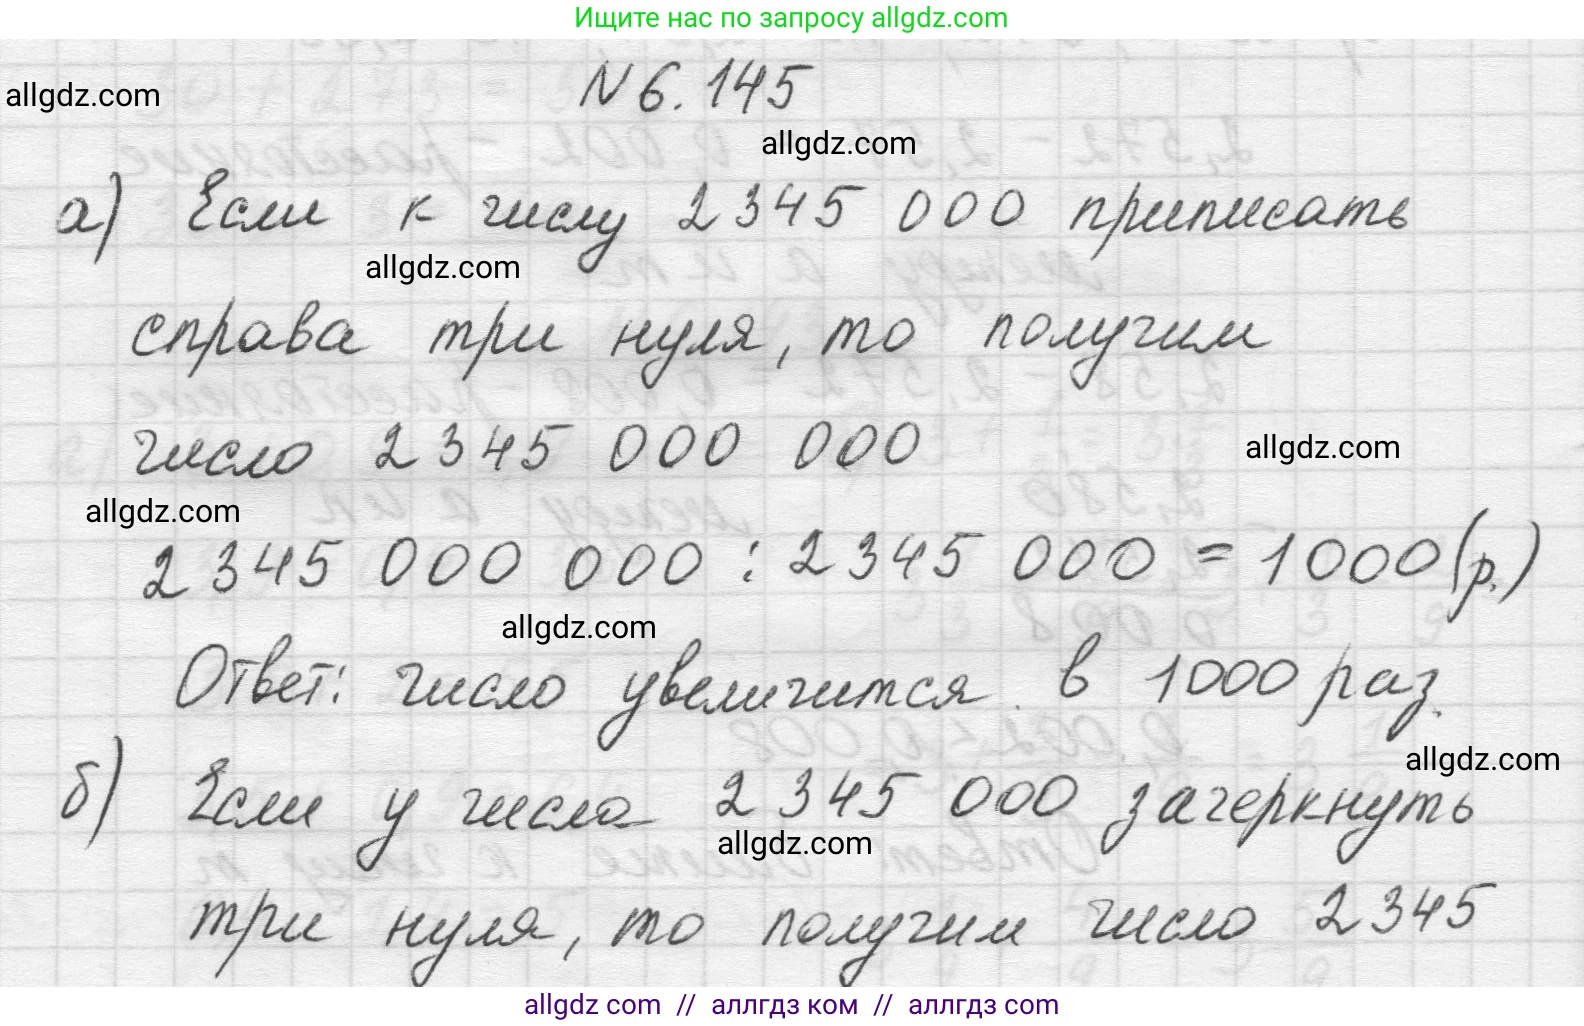 Ищите нас по запросу allgdz.com
N 6.145
allgdz.com
allgdz.com
а) Если к числу 2345 000 приписать
allgdz.com
справа три нуля, то получим
число 2345 000 000
allgdz.com
allgdz.com
2345 000 000 : 2345 000 = 1000 (р.)
allgdz.com
Ответ: число увеличится в 1000 раз.
allgdz.com
б) Если у числа 2345 000 зачеркнуть
allgdz.com
три нуля, то получим число 2345
allgdz.com // аллгдз ком // аллгдз.com